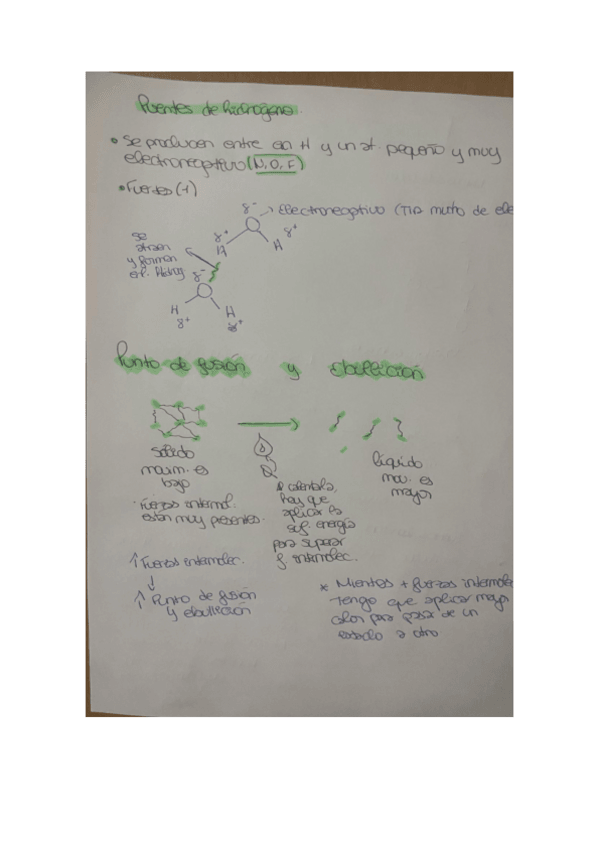 Puentes de hidrógeno
• Se producen entre un H y un at. pequeño y muy
electronegativo (N, O, F)
• Fuertes (+)
δ- → Electronegativo (Tira mucho de ele
δ+ δ+
H H
se
atraen
y forman
el p. Hidróg
δ-
H H
δ+ δ+
Punto de fusión y ebullición
sólido
movim. es
bajo
líquido
mov. es
mayor
· fuerzas intermol.
están muy presentes.
Al calentarla,
hay que
aplicar la
suf. energía
para superar
f. intermolec.
↑ Fuerzas intermolec.
↓
↑ Punto de fusión
y ebullición
* Mientras + fuerzas intermole
Tengo que aplicar mayo
calor para pasar de un
estado a otro